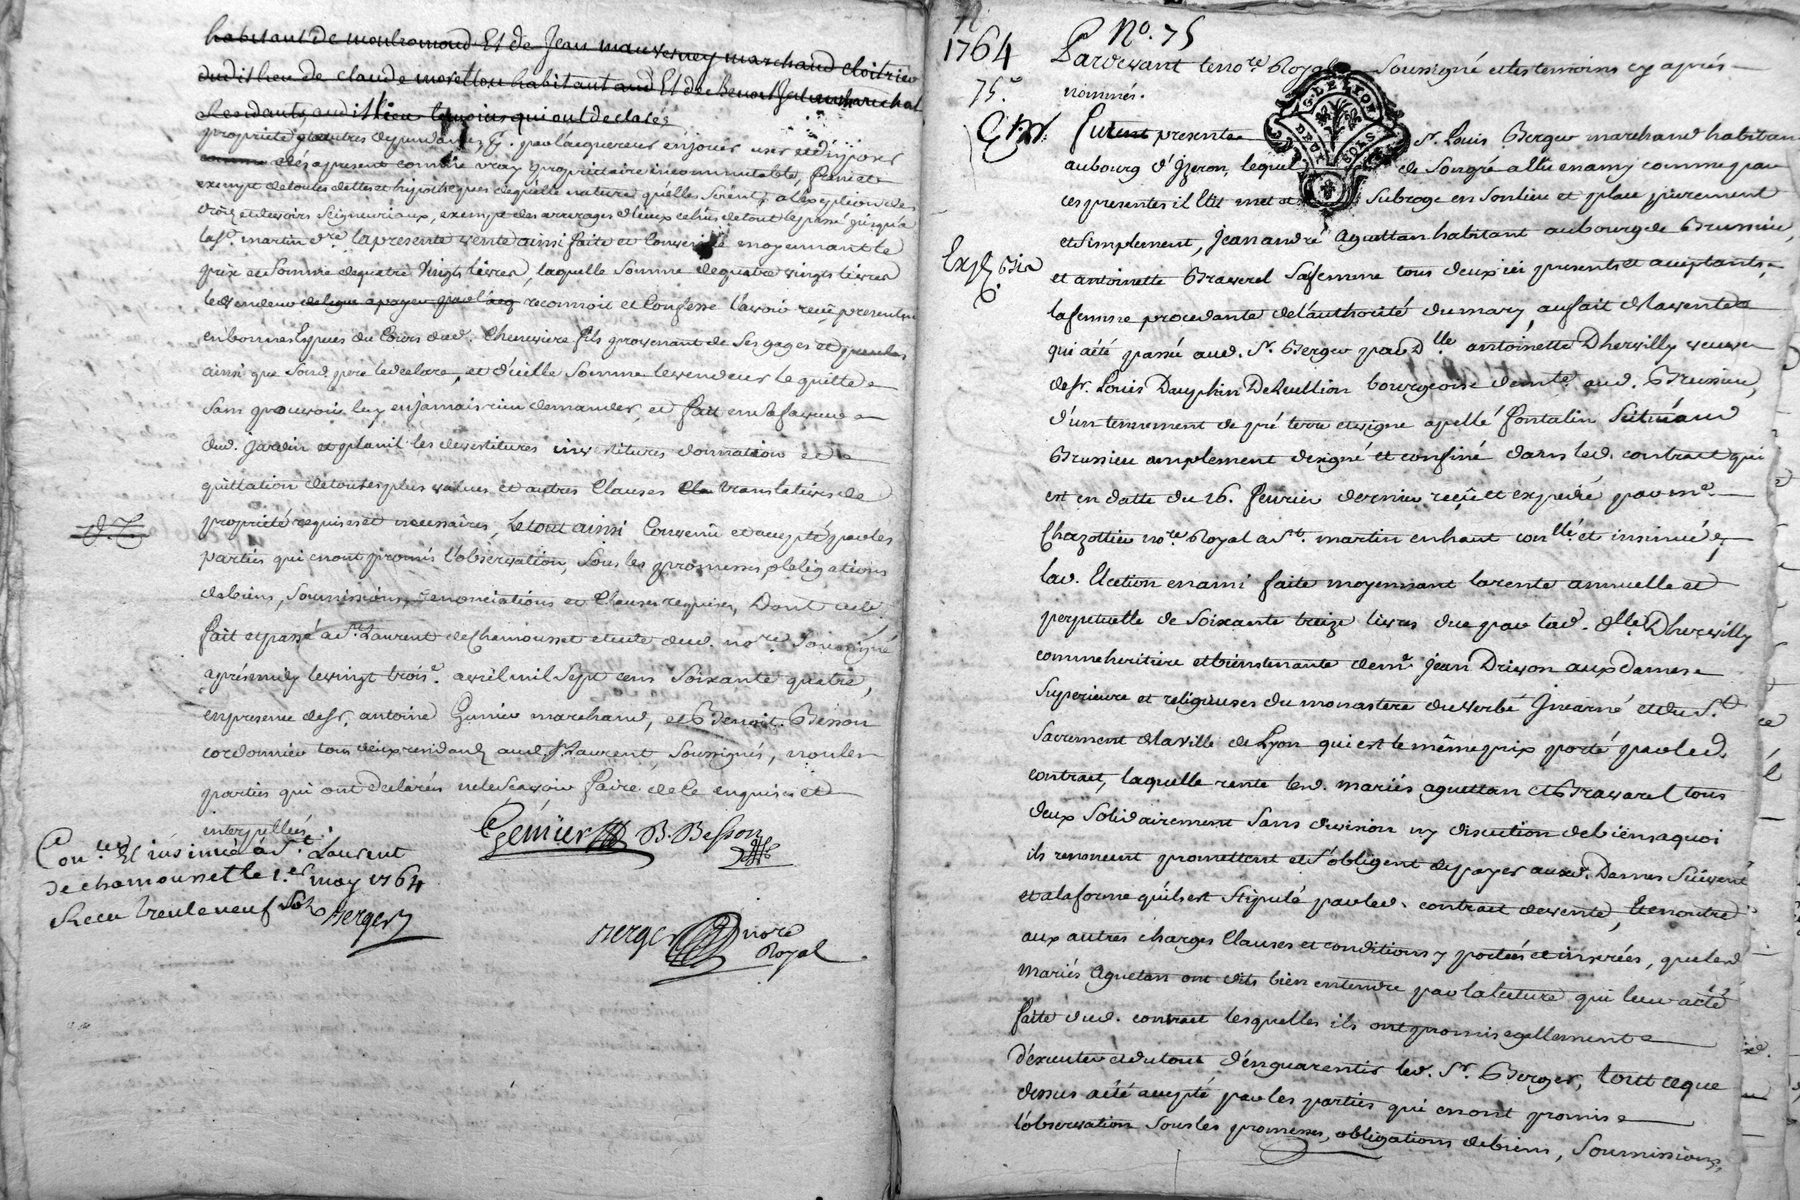 habitant de montromand Et de Jean mauverney marchand cloitrier
dudit lieu de claude morellon habitant aud Et de Benoit marechal
Residants audit lieu temoins qui ont declarés
propriété et autres dependances &. par l'acquereur en jouir user et disposer
comme des apresent comme vray proprietaire incommutable, franc et
exempt de toutes dettes et hipotheques de quelle nature qu'elles soient, a l'exception des
droits et devoirs Seigneuriaux, exempt des arrerages d'iceux celuis de tout le passé jusqu'a
la st. martin dre. la presente vente ainsi faite et Convenüe moyennant le
prix et Somme de quatre vingts livres, laquelle Somme de quatre vingts livres
le vendeur reconnoit et Confesse l'avoir reçüe presentem
en bonnes Especes du Cours dud. Cheneviere fils provenant de Ses gages
ainsi que Sond. pere le declare, et d'icelle Somme le vendeur le quitte
sans pouvoir luy en jamais rien demander, et fait en sa faveur
dud. Jardin et planil les devestitures investitures donnation et
quittation de toutes plus values et autres Clauses translatives de
proprieté requises et necessaires, Le tout ainsi Convenü et accepté par les
parties qui en ont promis l'observation, Sous les promesses, obligations
de biens, Soumissions, renonciations et Clauses requises, Dont acte
fait et passé a st. Laurent de Chamousset etude dud. nore. Soussigné
aprés midy le vingt trois. avril mil Sept cens Soixante quatre,
en presence de sr. antoine Genier marchand, et Benoit Besson
cordonnier tous deux residants aud. st. Laurent, Soussignés, non les
parties qui ont declarés ne le Scavoir faire de ce enquises et
interpellées.
Genüier B. Besson
Conlé. Et insinüé à St. Laurent
de chamousset le 1.er may 1764
Recu trente neuf Sols
Berger
Berger nore
Royal
1764 No. 75
Pardevant le nore. Royal Soussigné et les temoins cy aprés
75.e nommés.
G. DE LYON
DEUX SOLS
Furent presents Sr. Louis Berger marchand habitant
au bourg d'Yzeron, lequel de Son gré a Elu en amy comme par
ces presentes il Elit met et Subroge en Son lieu et place purement
et Simplement, Jean andré aguettan habitant au bourg de Brussieu,
et antoinette Bravarel Sa femme tous deux ici presents et acceptants,
la femme procedante de l'authorité du mary, au fait de la vente
qui a été passé aud. Sr. Berger par Dlle. antoinette Dhervilly veuve
de sr. Louis Dauphin bourgeoise demte. aud. Brussieu,
d'un tennement de pré terre et vigne apellé fontalin Scitué aud
Brussieu amplement designé et confiné dans led. contract qui
est en datte du 26. fevrier dernier reçü et expedié par me.
Chazottier nore. Royal a St. martin en haut conllé. et insinüé,
lad. Election en ami faite moyennant la rente annuelle et
perpetuelle de Soixante treize livres due par lad. dlle. Dhervilly
comme heritiere et biens tenante de mr. Jean Drivon aux dames
Superieure et religieuses du monastere du verbe Jncarné et du St.
Sacrement de la ville de Lyon qui est le même prix porté par led.
contract, laquelle rente lesd. mariés aguettan et Bravarel tous
deux Solidairement Sans division ny discution de biens a quoi
ils renoncent promettent et S'obligent de payer auxd. Dames Suivant
et a la forme qu'il est Stipulé par led. contract de vente, Et en outre
aux autres charges Clauses et conditions y portées et inserées, que lesd
mariés aguetan ont dits bien entendre par la lecture qui leur a été
faite dud. contract lesquelles ils ont promis egallement
d'executer et du tout d'en guarentir led. Sr. Berger, tout ce que
dessus a été accepté par les parties qui en ont promis
l'observation Sous les promesses, obligations de biens, Soumissions,